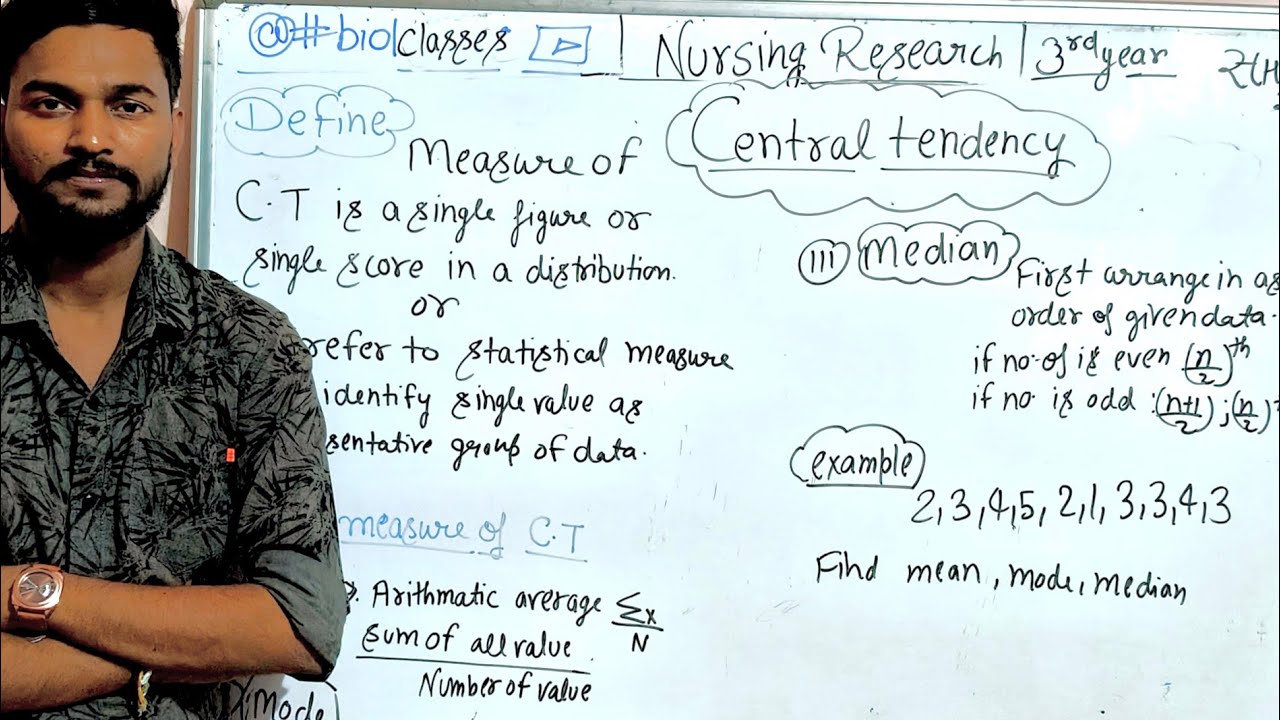 @#biolclasses | Nursing Research | 3rd year
Define
Measure of Central tendency
C.T is a single figure or
single score in a distribution.
or
refer to statistical measure
identify single value as
sentative group of data.
measure of C.T
Arithmatic average Σx/N
sum of all value
Number of value
Mode
III Median
First arrange in as
order of given data.
if no. of is even (n/2)th
if no is odd : (n+1/2) ; (n/2)
example
2, 3, 4, 5, 2, 1, 3, 3, 4, 3
Find mean, mode, median